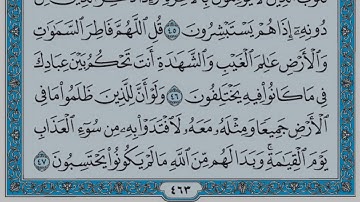 دُونِهِۦٓ إِذَا هُمْ يَسْتَبْشِرُونَ ٤٥ قُلِ ٱللَّهُمَّ فَاطِرَ ٱلسَّمَٰوَٰتِ
وَٱلْأَرْضِ عَٰلِمَ ٱلْغَيْبِ وَٱلشَّهَٰدَةِ أَنتَ تَحْكُمُ بَيْنَ عِبَادِكَ
فِى مَا كَانُوا۟ فِيهِ يَخْتَلِفُونَ ٤٦ وَلَوْ أَنَّ لِلَّذِينَ ظَلَمُوا۟ مَا فِى
ٱلْأَرْضِ جَمِيعًا وَمِثْلَهُۥ مَعَهُۥ لَٱفْتَدَوْا۟ بِهِۦ مِن سُوٓءِ ٱلْعَذَابِ
يَوْمَ ٱلْقِيَٰمَةِ ۚ وَبَدَا لَهُم مِّنَ ٱللَّهِ مَا لَمْ يَكُونُوا۟ يَحْتَسِبُونَ ٤٧
٤٦٣